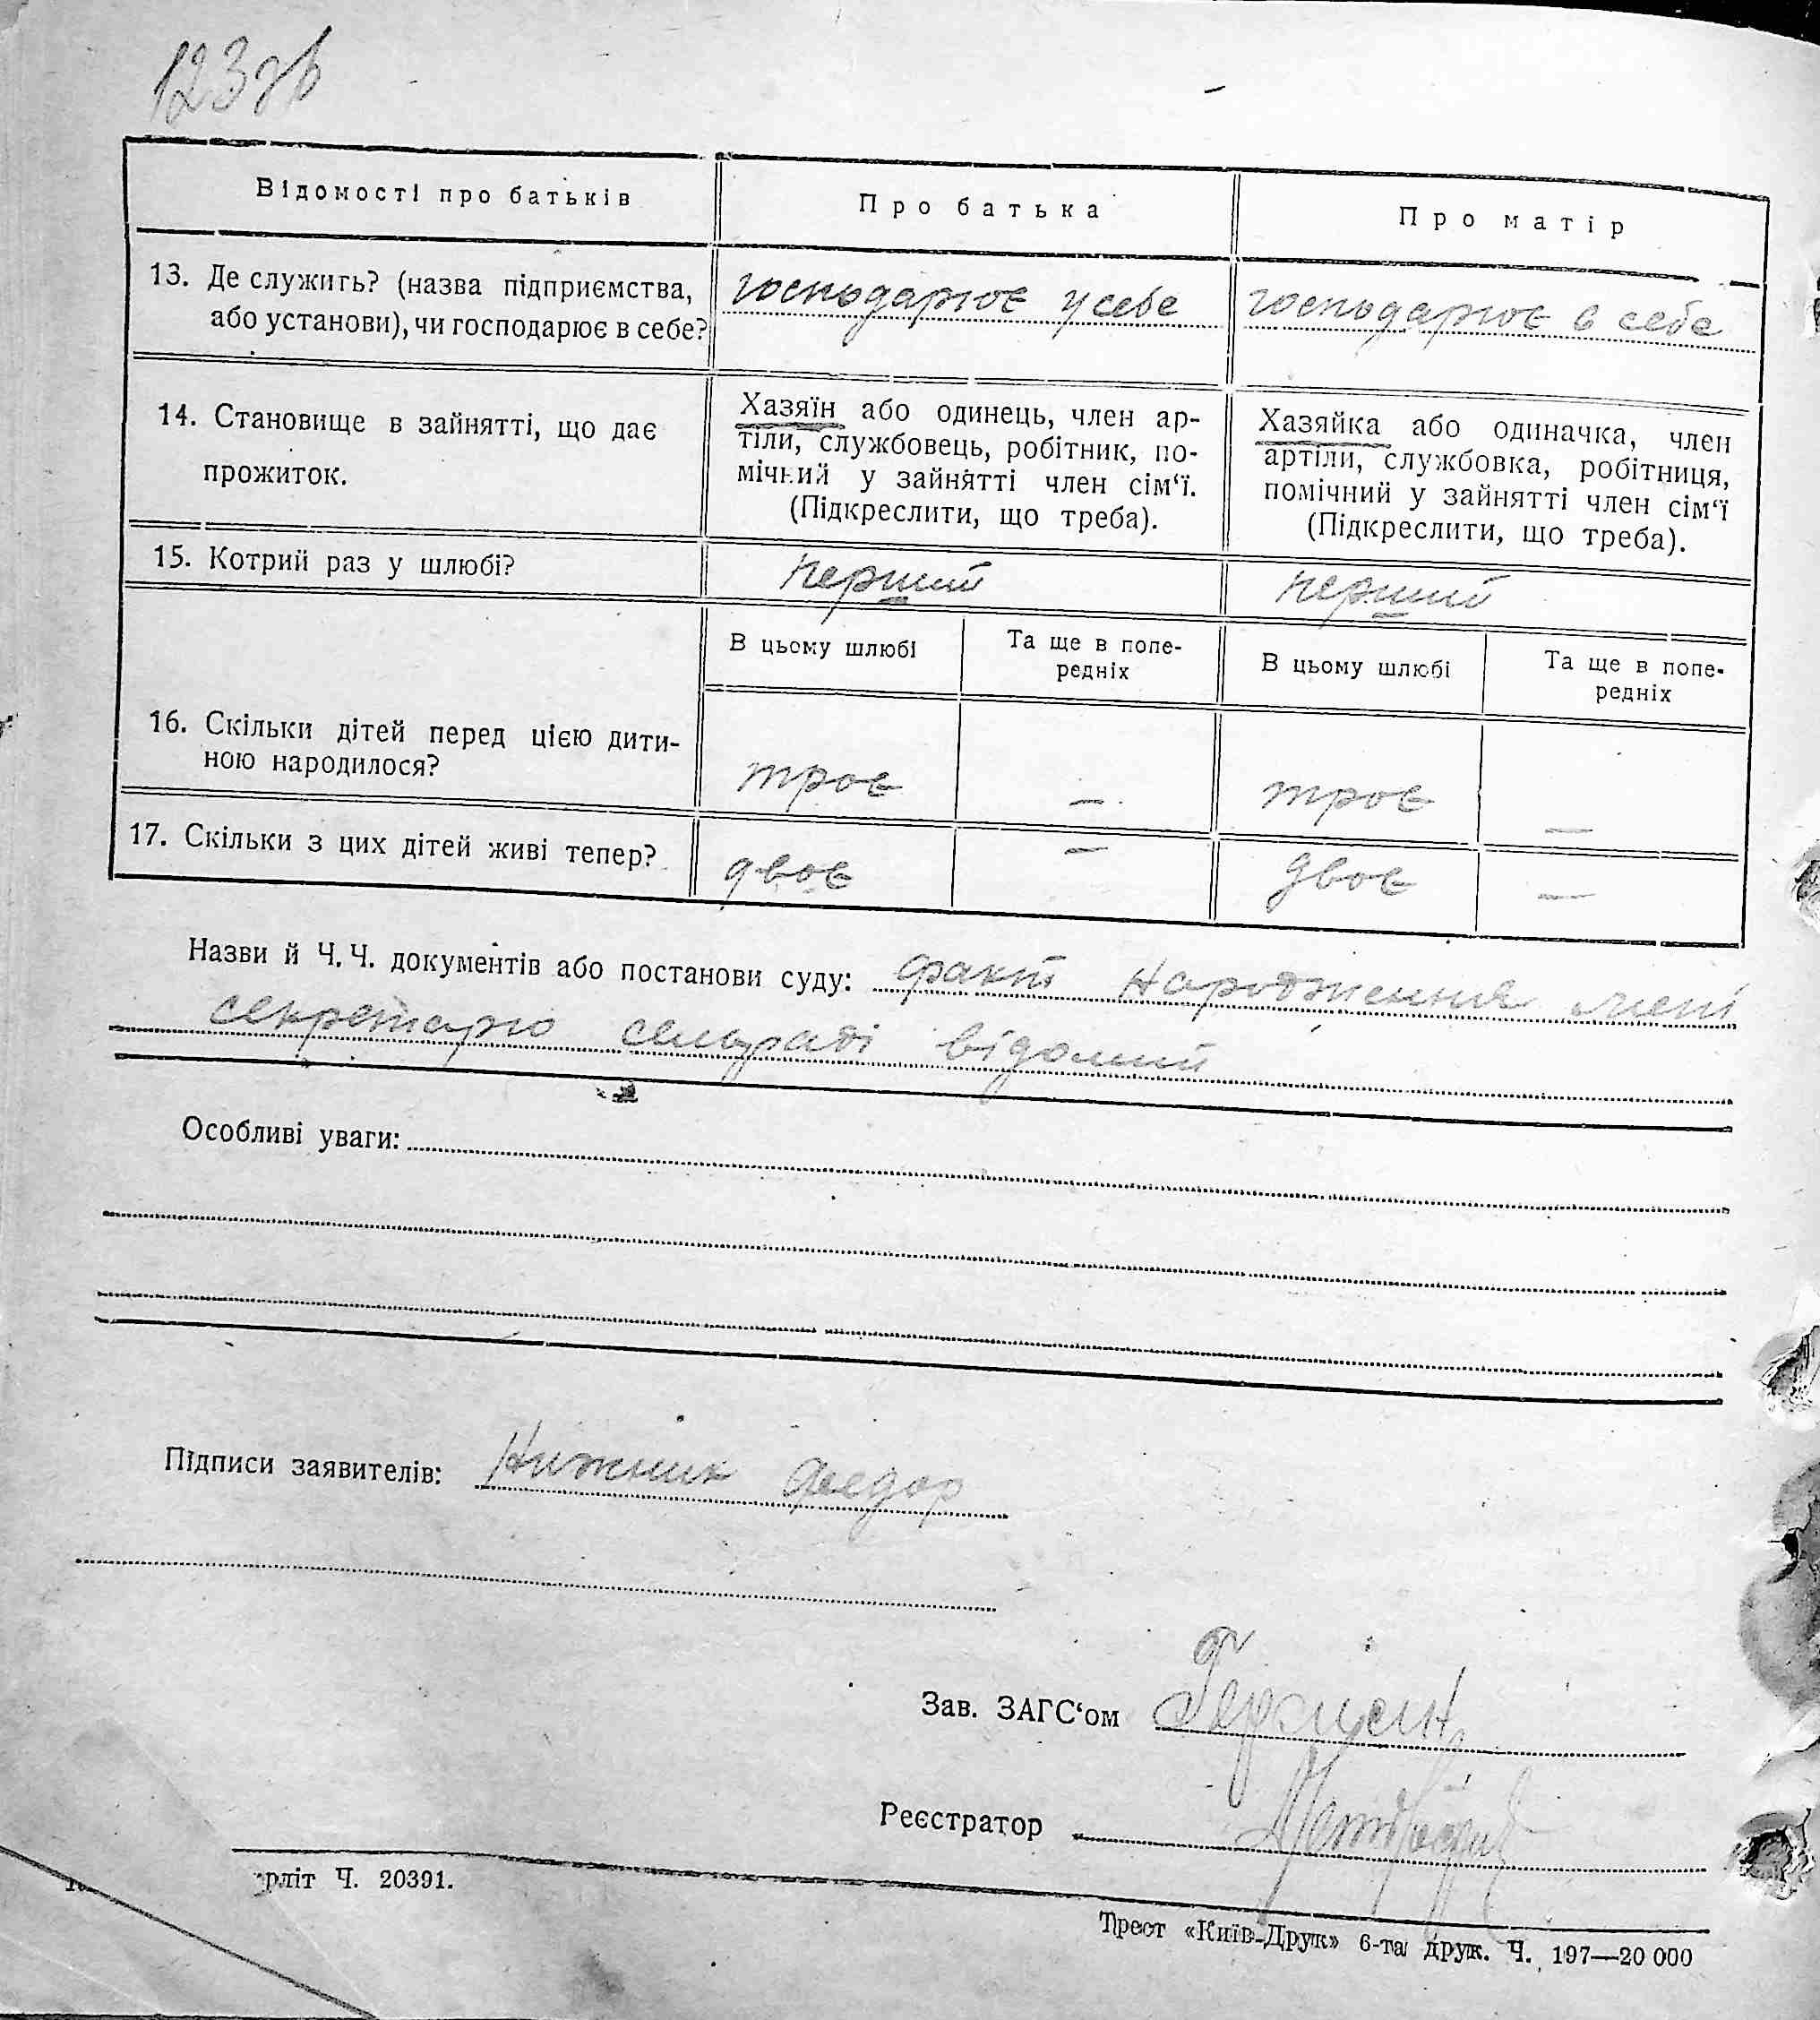 123зв
Відомості про батьків
Про батька
Про матір
13. Де служить? (назва підприємства,
або установи), чи господарює в себе?
господарює у себе
господарює в себе
14. Становище в зайнятті, що дає
прожиток.
Хазяїн або одинець, член ар-
тіли, службовець, робітник, по-
мічний у зайнятті член сім‘ї.
(Підкреслити, що треба).
Хазяйка або одиначка, член
артіли, службовка, робітниця,
помічний у зайнятті член сім‘ї
(Підкреслити, що треба).
15. Котрий раз у шлюбі?
перший
перший
В цьому шлюбі
Та ще в попе-
редніх
В цьому шлюбі
Та ще в попе-
редніх
16. Скільки дітей перед цією дити-
ною народилося?
троє
—
троє
—
17. Скільки з цих дітей живі тепер?
двоє
—
двоє
—
Назви й Ч.Ч. документів або постанови суду: факт народження мені
секретарю сельраді відомий
Особливі уваги:
Підписи заявителів: Нижник Федор
Зав. ЗАГС‘ом
Реєстратор
рліт Ч. 20391.
Трест «Київ-Друк» 6-та друк. Ч. 197—20 000